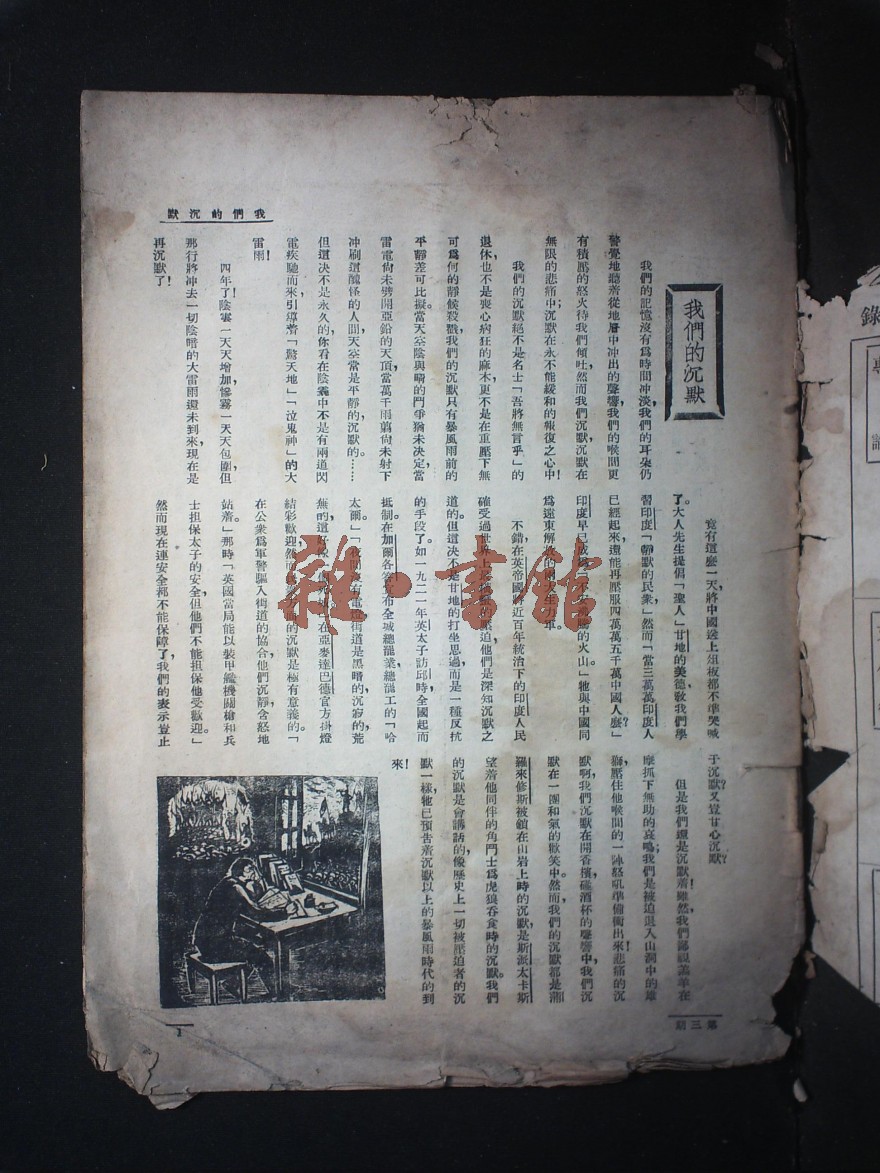 我們的沉默
我們的沉默
我們的記憶沒有爲時間冲淡，我們的耳朵仍
警覺地聽着從地層中冲出的聲響，我們的喉間更
有積壓的怒火待我們傾吐，然而我們沉默，沉默在
無限的悲痛中；沉默在永不能緩和的報復之心中！
我們的沉默絕不是名士「吾將無言乎」的
退休，也不是喪心病狂的麻木，更不是在重壓下無
可爲何的靜候殺戮，我們的沉默只有暴風雨前的
平靜差可比擬。當天空陰與晴的鬥爭猶未決定，當
雷電尙未劈開亞鉛的天頂，當萬千雨箭尙未射下
冲刷這醜怪的人間，天空常是平靜的，沉默的。……
但這决不是永久的，你看在陰霾中不是有兩道閃
電疾馳而來，引導着「驚天地」「泣鬼神」的大
雷雨！
四年了！陰雲一天天增加，慘霧一天天包圍，但
那行將冲去一切陰暗的大雷雨還未到來，現在是
再沉默了！
竟有這麼一天，將中國送上俎板都不準哭喊
了。大人先生提倡「聖人」甘地的美德，敎我們學
習印度「靜默的民衆」，然而「當三萬萬印度人
已經起來，還能再壓服四萬萬五千萬中國人麼？」
印度早已成
火山。」牠與中國同
爲遠東解放的
生力軍。
不錯，在英帝國將近百年統治下的印度人民
確受過世界上
的壓迫，他們是深知沉默之
道的。但這决不是甘地的打坐思過，而是一種反抗
的手段了。如一九二一年英太子訪邱時，全國起而
抵制，在加爾各答
布全城總罷業總罷工的「哈
太爾」「夜間沒有電燈，街道是黑暗的，沉寂的，荒
無的，這好像
在亞麥達巴德官方掛燈
結彩歡迎，然而
的沉默是極有意義的。「
在公衆爲軍警驅入街道的協合，他們沉靜，含怒地
站着」那時「英國當局能以裝甲纖機關槍和兵
士担保太子的安全，但他們不能担保他受歡迎。」
然而現在連安全都不能保障了，我們的表示豈止
于沉默？又豈甘心沉默？
但是我們還是沉默着！雖然，我們鄙視羔羊在
摩抓下無助的哀鳴；我們是被迫退入山洞中的雄
獅，壓住他喉間的一陣怒吼準備衝出來！悲痛的沉
默啊，我們沉默在開香檳碰酒杯的聲響中，我們沉
默在一團和氣的歡笑中。然而，我們的沉默都是蒲
羅來修斯被鎖在山岩上時的沉默，是斯派太卡斯
望着他同伴的角鬥士爲虎狼吞食時的沉默。我們
的沉默是會講話的，像歷史上一切被壓迫者的沉
默一樣，牠已預告着沉默以上的暴風雨時代的到
來！
第三期
1
錄
專
雜·書館